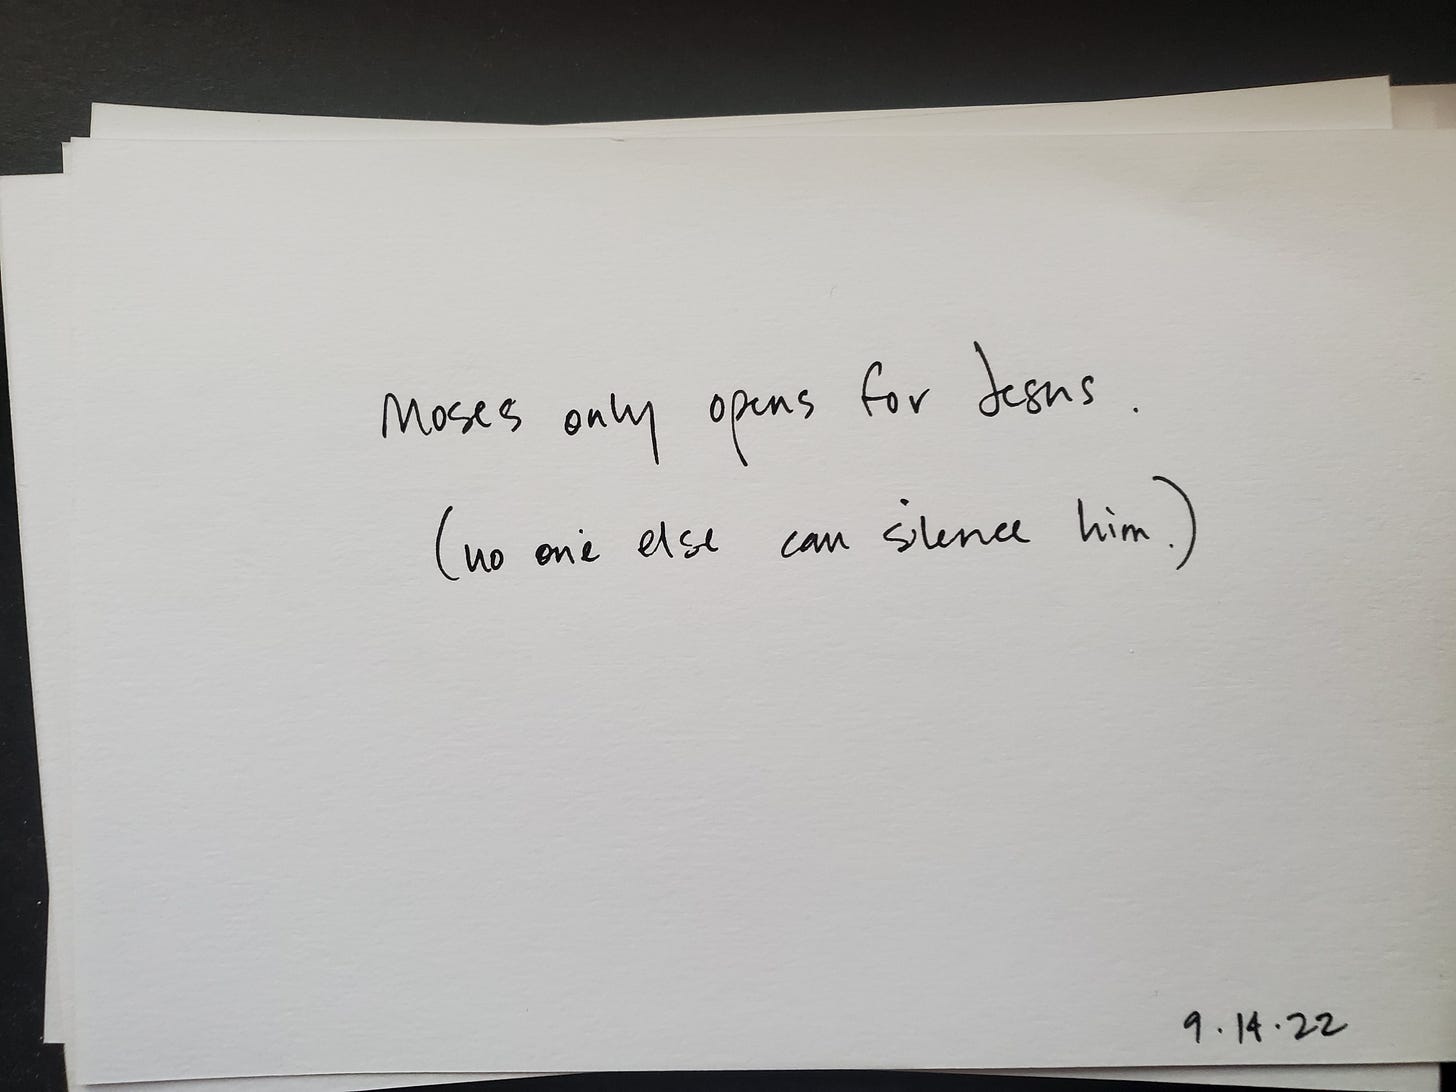 Moses only opens for Jesus.
(no one else can silence him.)
9.14.22